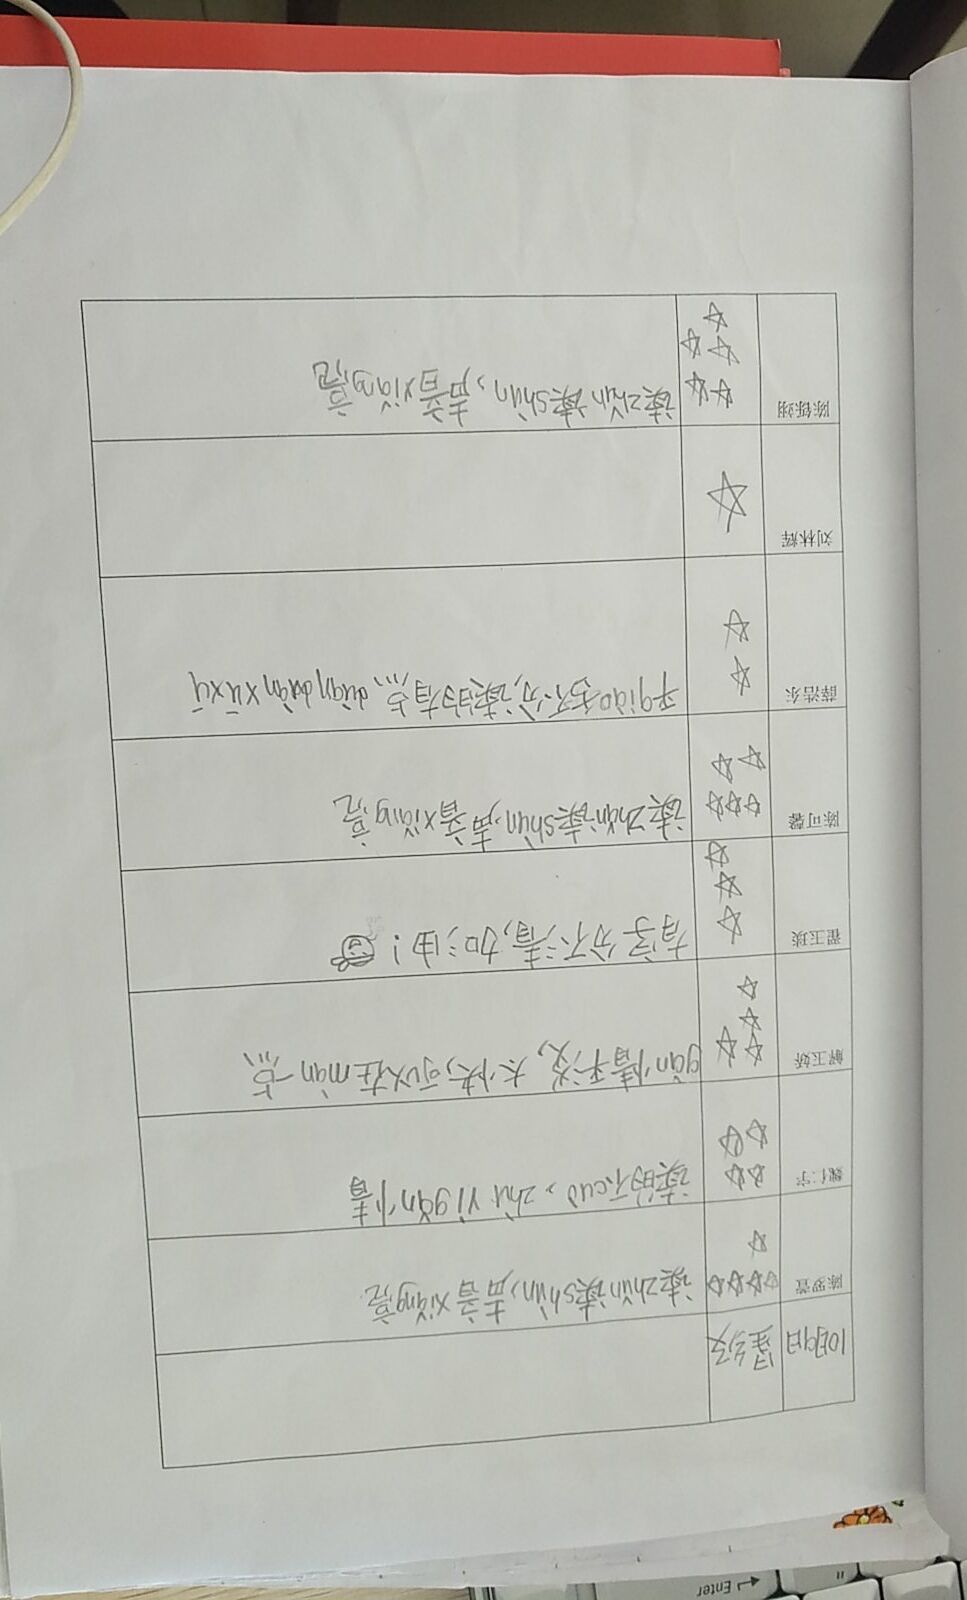 10月9日 星级
陈罗萱 读zhǔn读shùn,声音xiǎng亮
魏仁宇 读的不cuò、zhù yì gǎn情
解玉娇 gǎn情不没,太快,可以在màn一点
翟玉琰 有字分不清,加油!
陈可馨 读zhǔn读shùn,声音xiǎng亮
薛浩东 平qiáo舌不分,读的有点duàn duàn xù xù
刘林辉
陈铄翊 读zhǔn读shùn,声音xiǎng亮
Enter